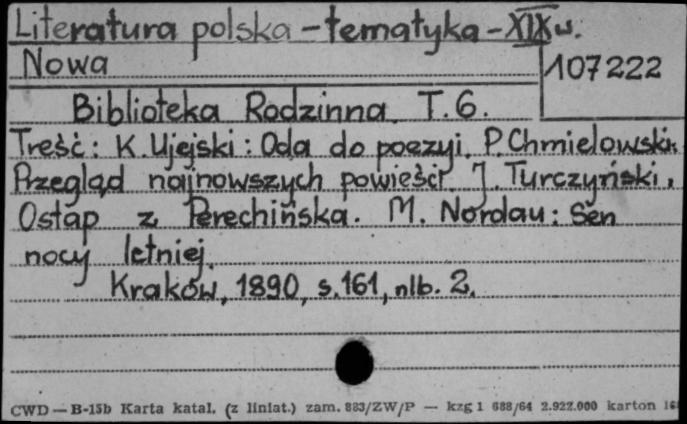 Literatura polska – tematyka – XIX w.
Nowa
107222
Biblioteka Rodzinna. T. 6.
Treść: K. Ujejski: Oda do poezyi. P. Chmielowski:
Przegląd najnowszych powieści. J. Turczyński,
Ostap z Perechińska. M. Nordau: Sen
nocy letniej.
Kraków, 1890, s. 161, nlb. 2.
CWD — B-15b Karta katal. (z liniat.) zam. 883/ZW/P — kzg 1 688/64 2.922.000 karton